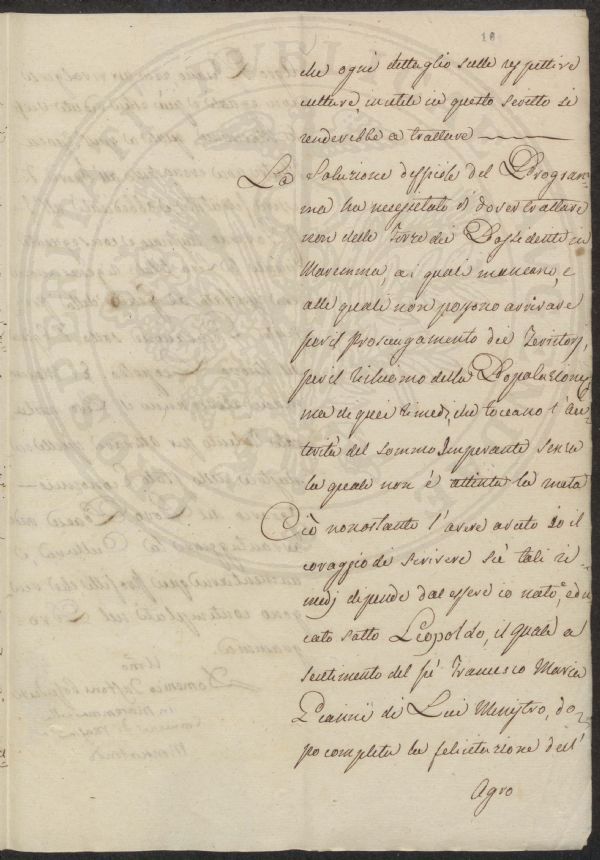 18
che ogni dettaglio sulle respettive
culture, inutile in questo scritto si
renderebbe a trattare
La Soluzione dessicle del Program-
ma ha necessitato di dover trattare
non delle Terre dei Possidenti in
Maremma, a i quali mancano, e
alle quali non possono arrivare
per il Prosciugamento dei Territorj,
per il richiamo della Popolazione,
ma di quei rimedj, che toccano l'Au-
torità del sommo Imperante senza
la quale non è attinta la meta
Ciò nonostante l'avere avuto io il
coraggio di scrivere su tali ri-
medj dipende dal essere io nato, ed edu-
cato sotto Leopoldo, il quale a
sentimento del fù Francesco Maria
Gianni di Lui Ministro, do-
po completa la felicitazione dell'
Agro